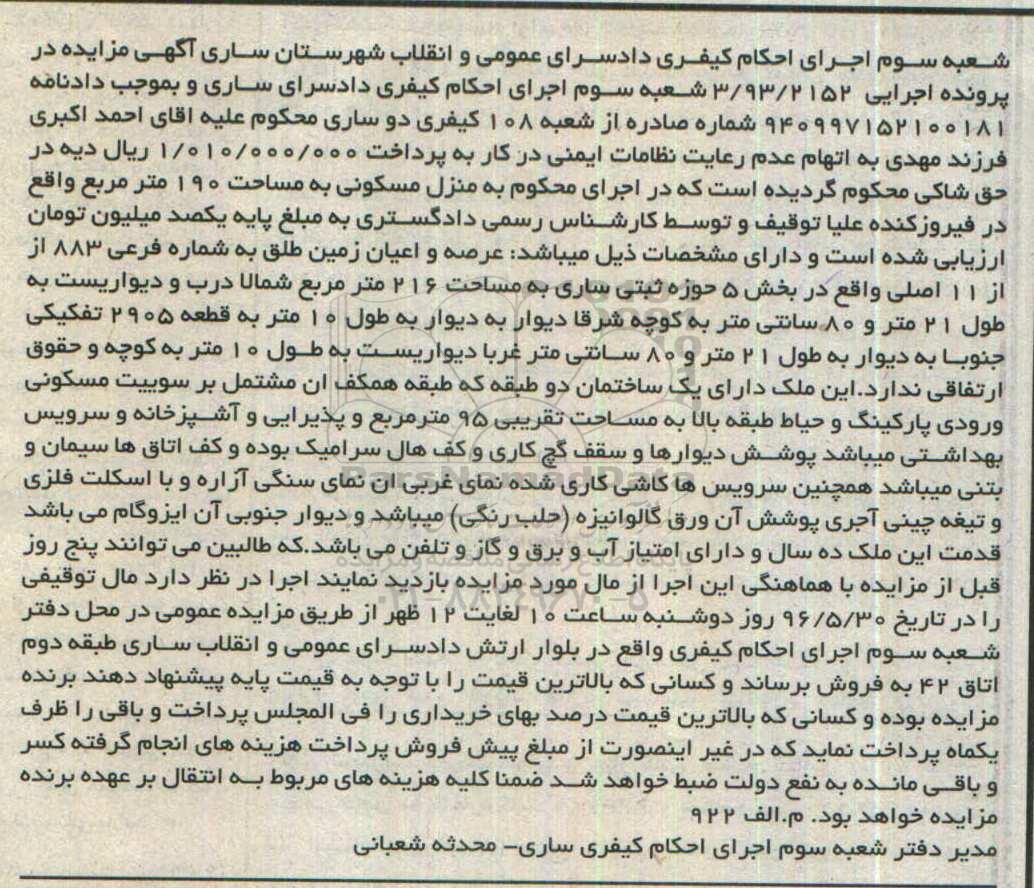 شعبه سوم اجرای احکام کیفری دادسرای عمومی و انقلاب شهرستان ساری آگهی مزایده در
پرونده اجرایی ۳/۹۳/۲۱۵۲ شعبه سوم اجرای احکام کیفری دادسرای ساری و بموجب دادنامه
۹۴۰۹۹۷۱۵۲۱۰۰۱۸۱ شماره صادره از شعبه ۱۰۸ کیفری دو ساری محکوم علیه اقای احمد اکبری
فرزند مهدی به اتهام عدم رعایت نظامات ایمنی در کار به پرداخت ۱/۰۱۰/۰۰۰/۰۰۰ ریال دیه در
حق شاکی محکوم گردیده است که در اجرای محکوم به منزل مسکونی به مساحت ۱۹۰ متر مربع واقع
در فیروزکنده علیا توقیف و توسط کارشناس رسمی دادگستری به مبلغ پایه یکصد میلیون تومان
ارزیابی شده است و دارای مشخصات ذیل میباشد: عرصه و اعیان زمین طلق به شماره فرعی ۸۸۳ از
از ۱۱ اصلی واقع در بخش ۵ حوزه ثبتی ساری به مساحت ۲۱۶ متر مربع شمالا درب و دیواریست به
طول ۲۱ متر و ۸۰ سانتی متر به کوچه شرقا دیوار به دیوار به طول ۱۰ متر به قطعه ۲۹۰۵ تفکیکی
جنوبا به دیوار به طول ۲۱ متر و ۸۰ سانتی متر غربا دیواریست به طول ۱۰ متر به کوچه و حقوق
ارتفاقی ندارد.این ملک دارای یک ساختمان دو طبقه که طبقه همکف ان مشتمل بر سوییت مسکونی
ورودی پارکینگ و حیاط طبقه بالا به مساحت تقریبی ۹۵ مترمربع و پذیرایی و آشپزخانه و سرویس
بهداشتی میباشد پوشش دیوارها و سقف گچ کاری و کف هال سرامیک بوده و کف اتاق ها سیمان و
بتنی میباشد همچنین سرویس ها کاشی کاری شده نمای غربی ان نمای سنگی آزاره و با اسکلت فلزی
و تیغه چینی آجری پوشش آن ورق گالوانیزه (حلب رنگی) میباشد و دیوار جنوبی آن ایزوگام می باشد
قدمت این ملک ده سال و دارای امتیاز آب و برق و گاز و تلفن می باشد.که طالبین می توانند پنج روز
قبل از مزایده با هماهنگی این اجرا از مال مورد مزایده بازدید نمایند اجرا در نظر دارد مال توقیفی
را در تاریخ ۹۶/۵/۳۰ روز دوشنبه ساعت ۱۰ لغایت ۱۲ ظهر از طریق مزایده عمومی در محل دفتر
شعبه سوم اجرای احکام کیفری واقع در بلوار ارتش دادسرای عمومی و انقلاب ساری طبقه دوم
اتاق ۴۲ به فروش برساند و کسانی که بالاترین قیمت را با توجه به قیمت پایه پیشنهاد دهند برنده
مزایده بوده و کسانی که بالاترین قیمت درصد بهای خریداری را فی المجلس پرداخت و باقی را ظرف
یکماه پرداخت نماید که در غیر اینصورت از مبلغ پیش فروش پرداخت هزینه های انجام گرفته کسر
و باقی مانده به نفع دولت ضبط خواهد شد ضمنا کلیه هزینه های مربوط به انتقال بر عهده برنده
مزایده خواهد بود. م.الف ۹۲۲
مدیر دفتر شعبه سوم اجرای احکام کیفری ساری- محدثه شعبانی
ParsNamadData